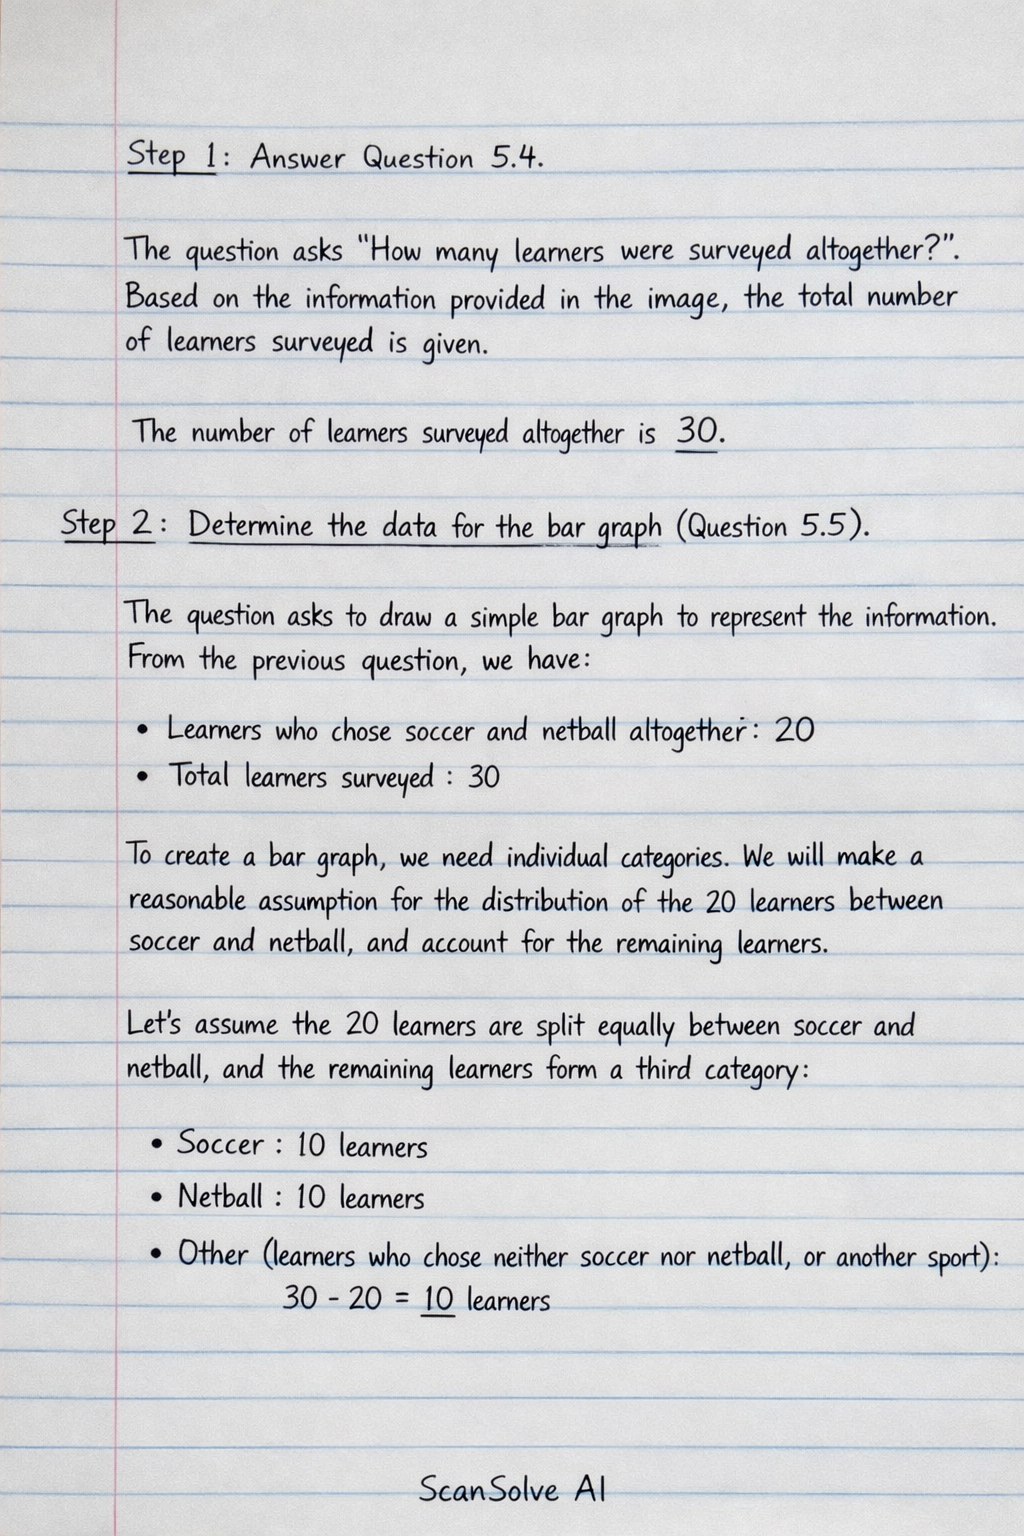 Step 1: Answer Question 5.4.
The question asks "How many learners were surveyed altogether?".
Based on the information provided in the image, the total number
of learners surveyed is given.
The number of learners surveyed altogether is 30.
Step 2: Determine the data for the bar graph (Question 5.5).
The question asks to draw a simple bar graph to represent the information.
From the previous question, we have:
• Learners who chose soccer and netball altogether: 20
• Total learners surveyed : 30
To create a bar graph, we need individual categories. We will make a
reasonable assumption for the distribution of the 20 learners between
soccer and netball, and account for the remaining learners.
Let's assume the 20 learners are split equally between soccer and
netball, and the remaining learners form a third category:
• Soccer : 10 learners
• Netball : 10 learners
• Other (learners who chose neither soccer nor netball, or another sport):
30 - 20 = 10 learners
ScanSolve AI